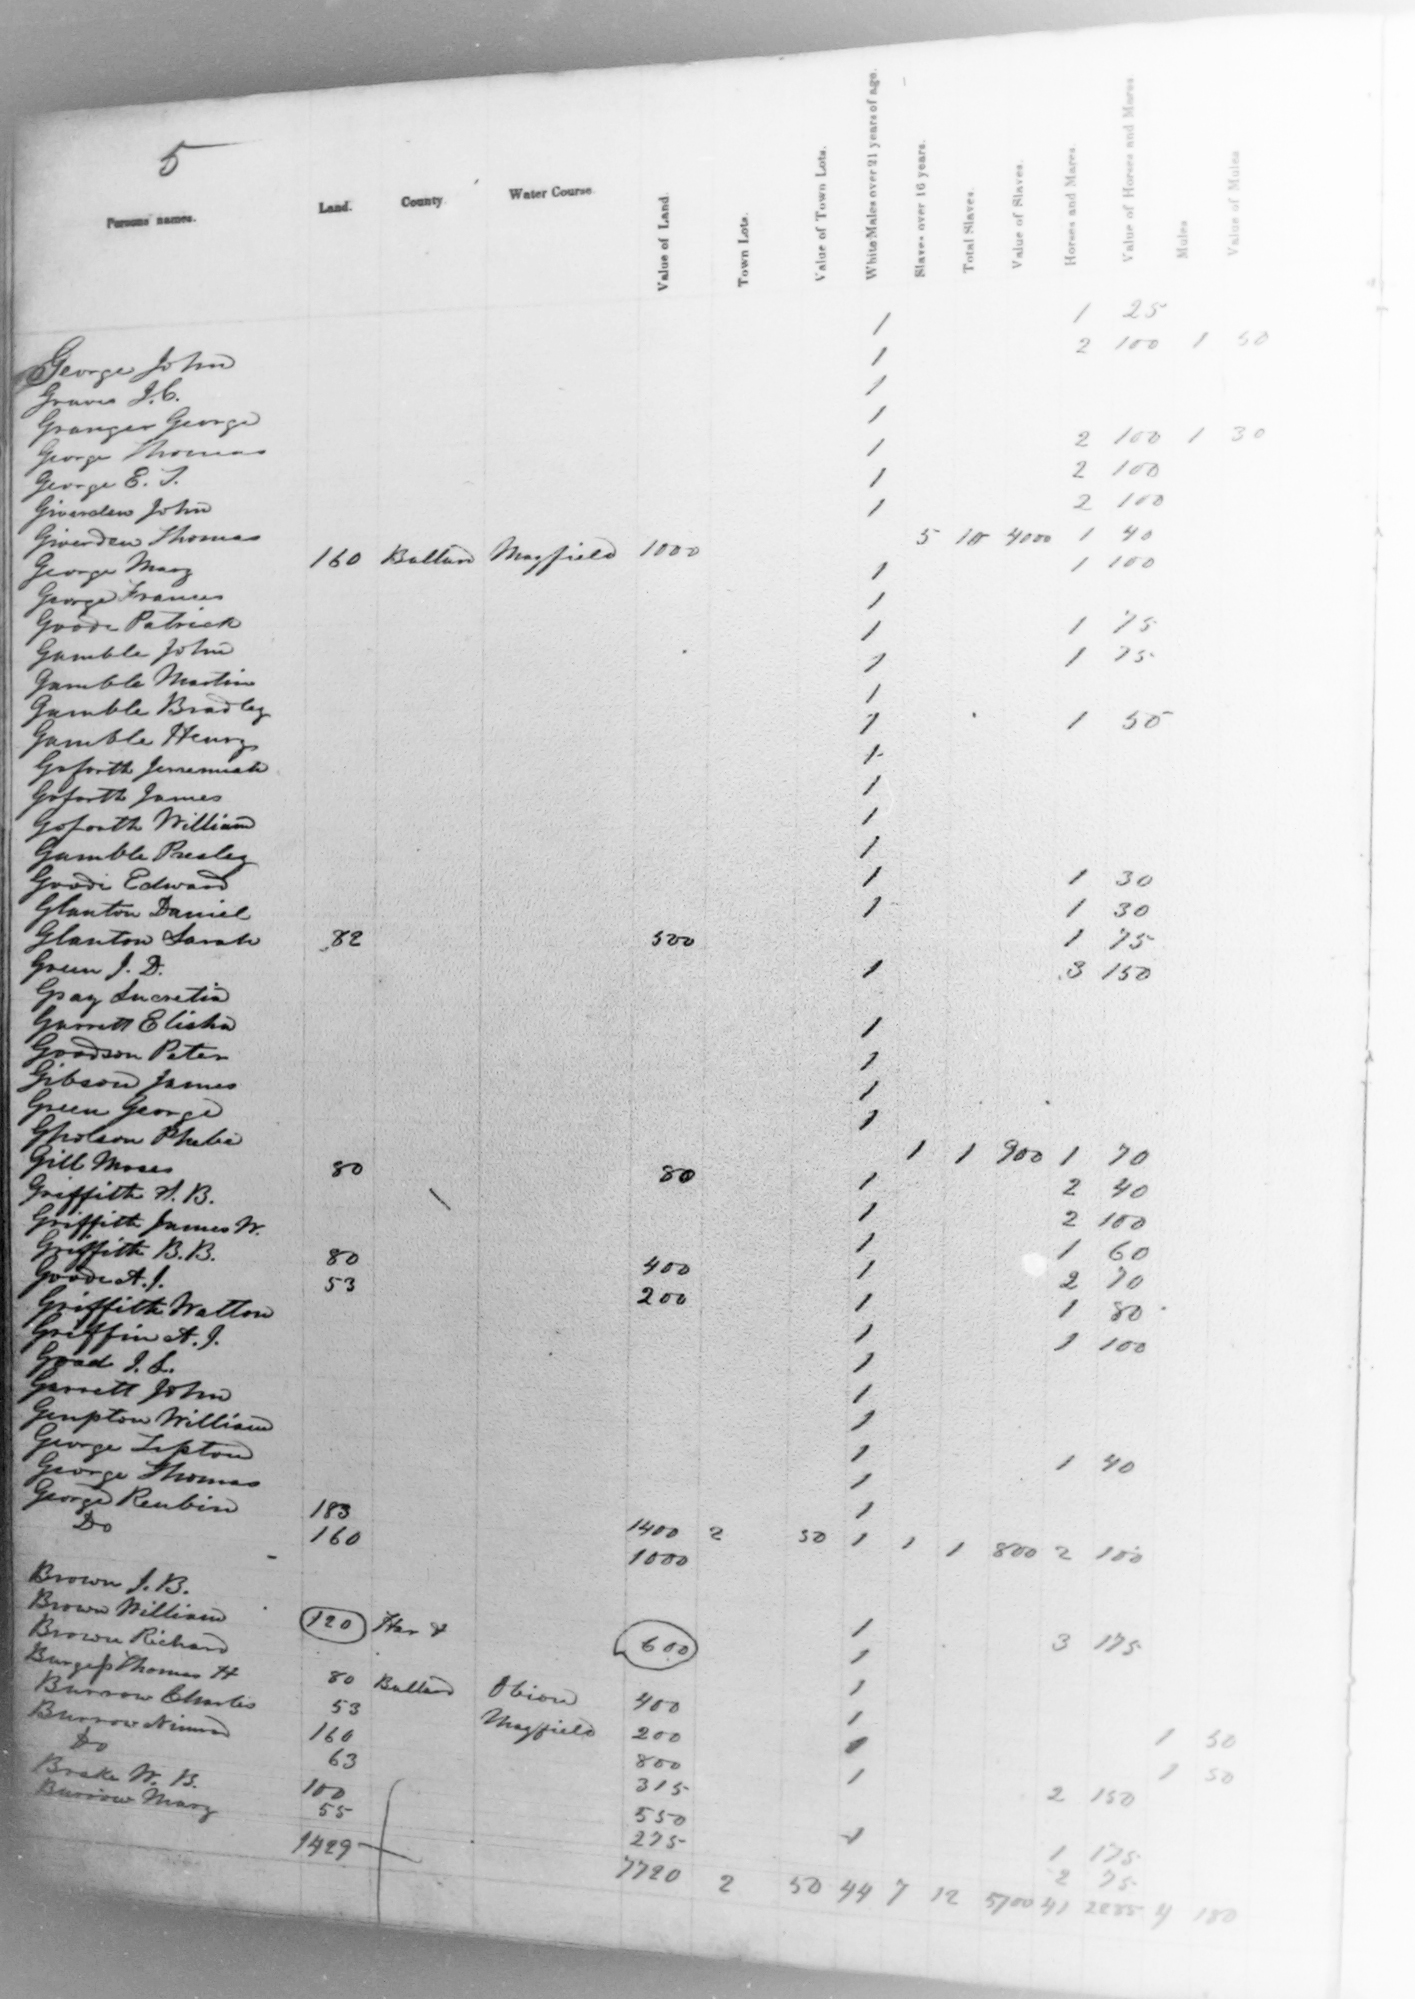 5
Persons' names. Land. County Water Course Value of Land. Town Lots. Value of Town Lots. White Males over 21 years of age. Slaves over 16 years. Total Slaves. Value of Slaves. Horses and Mares. Value of Horses and Mares Mules Value of Mules
George John 1 1 25
Graves J. C. 1 2 100 1 50
Granger George 1
George Thomas 1
George E. T. 1 2 100 1 30
Giverden John 1 2 100
Giverden Thomas 1 2 100
George Mary 160 Ballard Mayfield 1000 5 10 4000 1 40
George Frances 1 1 100
Goode Patrick 1
Gamble John 1 1 75
Gamble Martin 1 1 75
Gamble Bradley 1
Gamble Henry 1 1 50
Goforth Jerremiah 1
Goforth James 1
Goforth William 1
Gamble Presley 1
Goode Edward 1 1 30
Glanton Daniel 1 1 30
Glanton Sarah 82 500 1 75
Green J. D. 1 3 150
Gray Lucretia
Garrett Elisha 1
Goodson Peter 1
Gibson James 1
Green George 1
Gholson Phebe 1 1 900 1 70
Gill Moses 80 80 1 2 40
Griffith H. B. 1 2 100
Griffith James W. 1 1 60
Griffith B. B. 80 400 1 2 70
Goode A. J. 53 200 1 1 80
Griffith Walton 1 1 100
Griffin A. J. 1
Goad J. L. 1
Garrett John 1
Gempton William 1
George Tipton 1 1 40
George Thomas 1
George Reubin 183 1400 2 50 1 1 1 800 2 100
Do 160 1000
Brown J. B. 1
Brown William 1 3 175
Brown Richard 120 600 1
Burgess Thomas H 1
Burrow Charles 80 Ballard Obion 400 1 50
Burrow Nimrod 53 Mayfield 200 1 1 50
Do 160 800 2 150
Brake W. B. 63 315
Burrow Mary 100 550 1 175
55 275 2 75
1429 7720 2 50 44 7 12 5700 41 2885 4 180